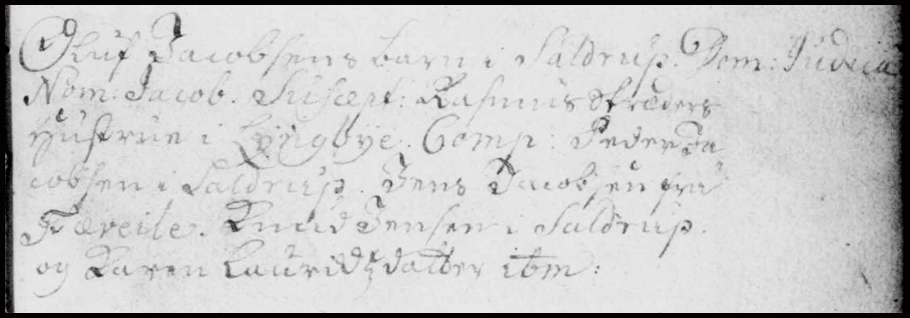 Oluf Jacobsens barn i Saldrup. Dom: Judica
Nom: Jacob. Suscept: Rasmus Skræders
Hustrue i Lyngbye. Comp: Peder Ja
cobsen i Saldrup. Jens Jacobsen fra
Færeile. Knud Jensen i Saldrup.
og Karen Lauridtzdatter itm: